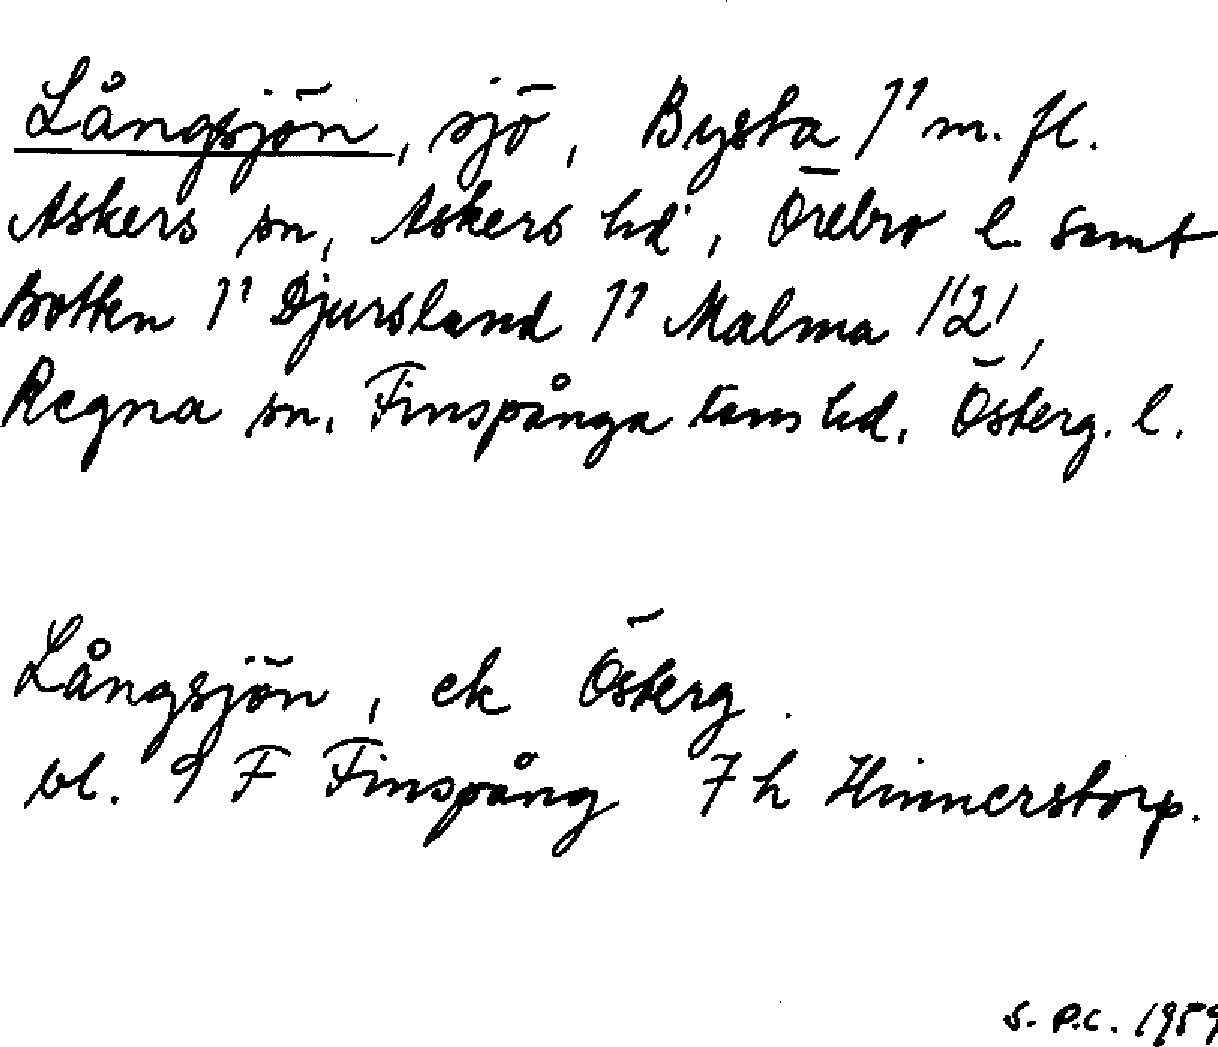 Långsjön, sjö, Bysta 1¹ m. fl.
Askers sn, Askers hd, Örebro l. samt
Botten 1¹ Djursland 1¹ Malma 1-2¹,
Regna sn, Finspånga läns hd, Österg. l.
Långsjön, ek Österg.
bl. 9 F Finspång 7 h Hinnerstorp.
S. P.C. 1959